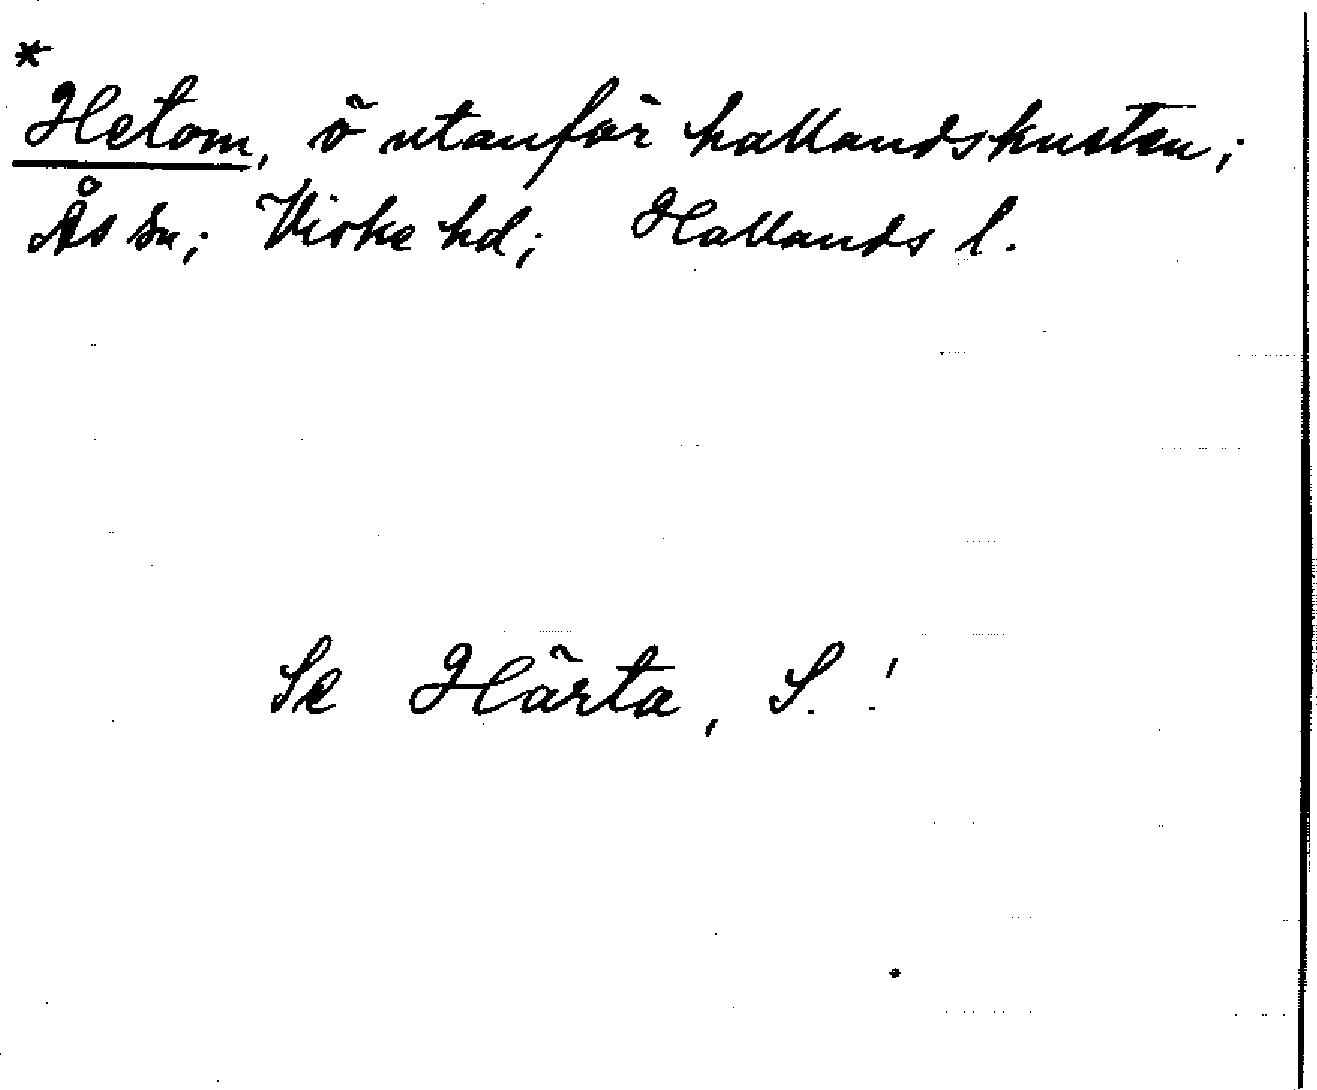 *
Hetom, ö utanför hallandskusten;
Ås sn; Viske hd; Hallands l.
Se Härta, S. !